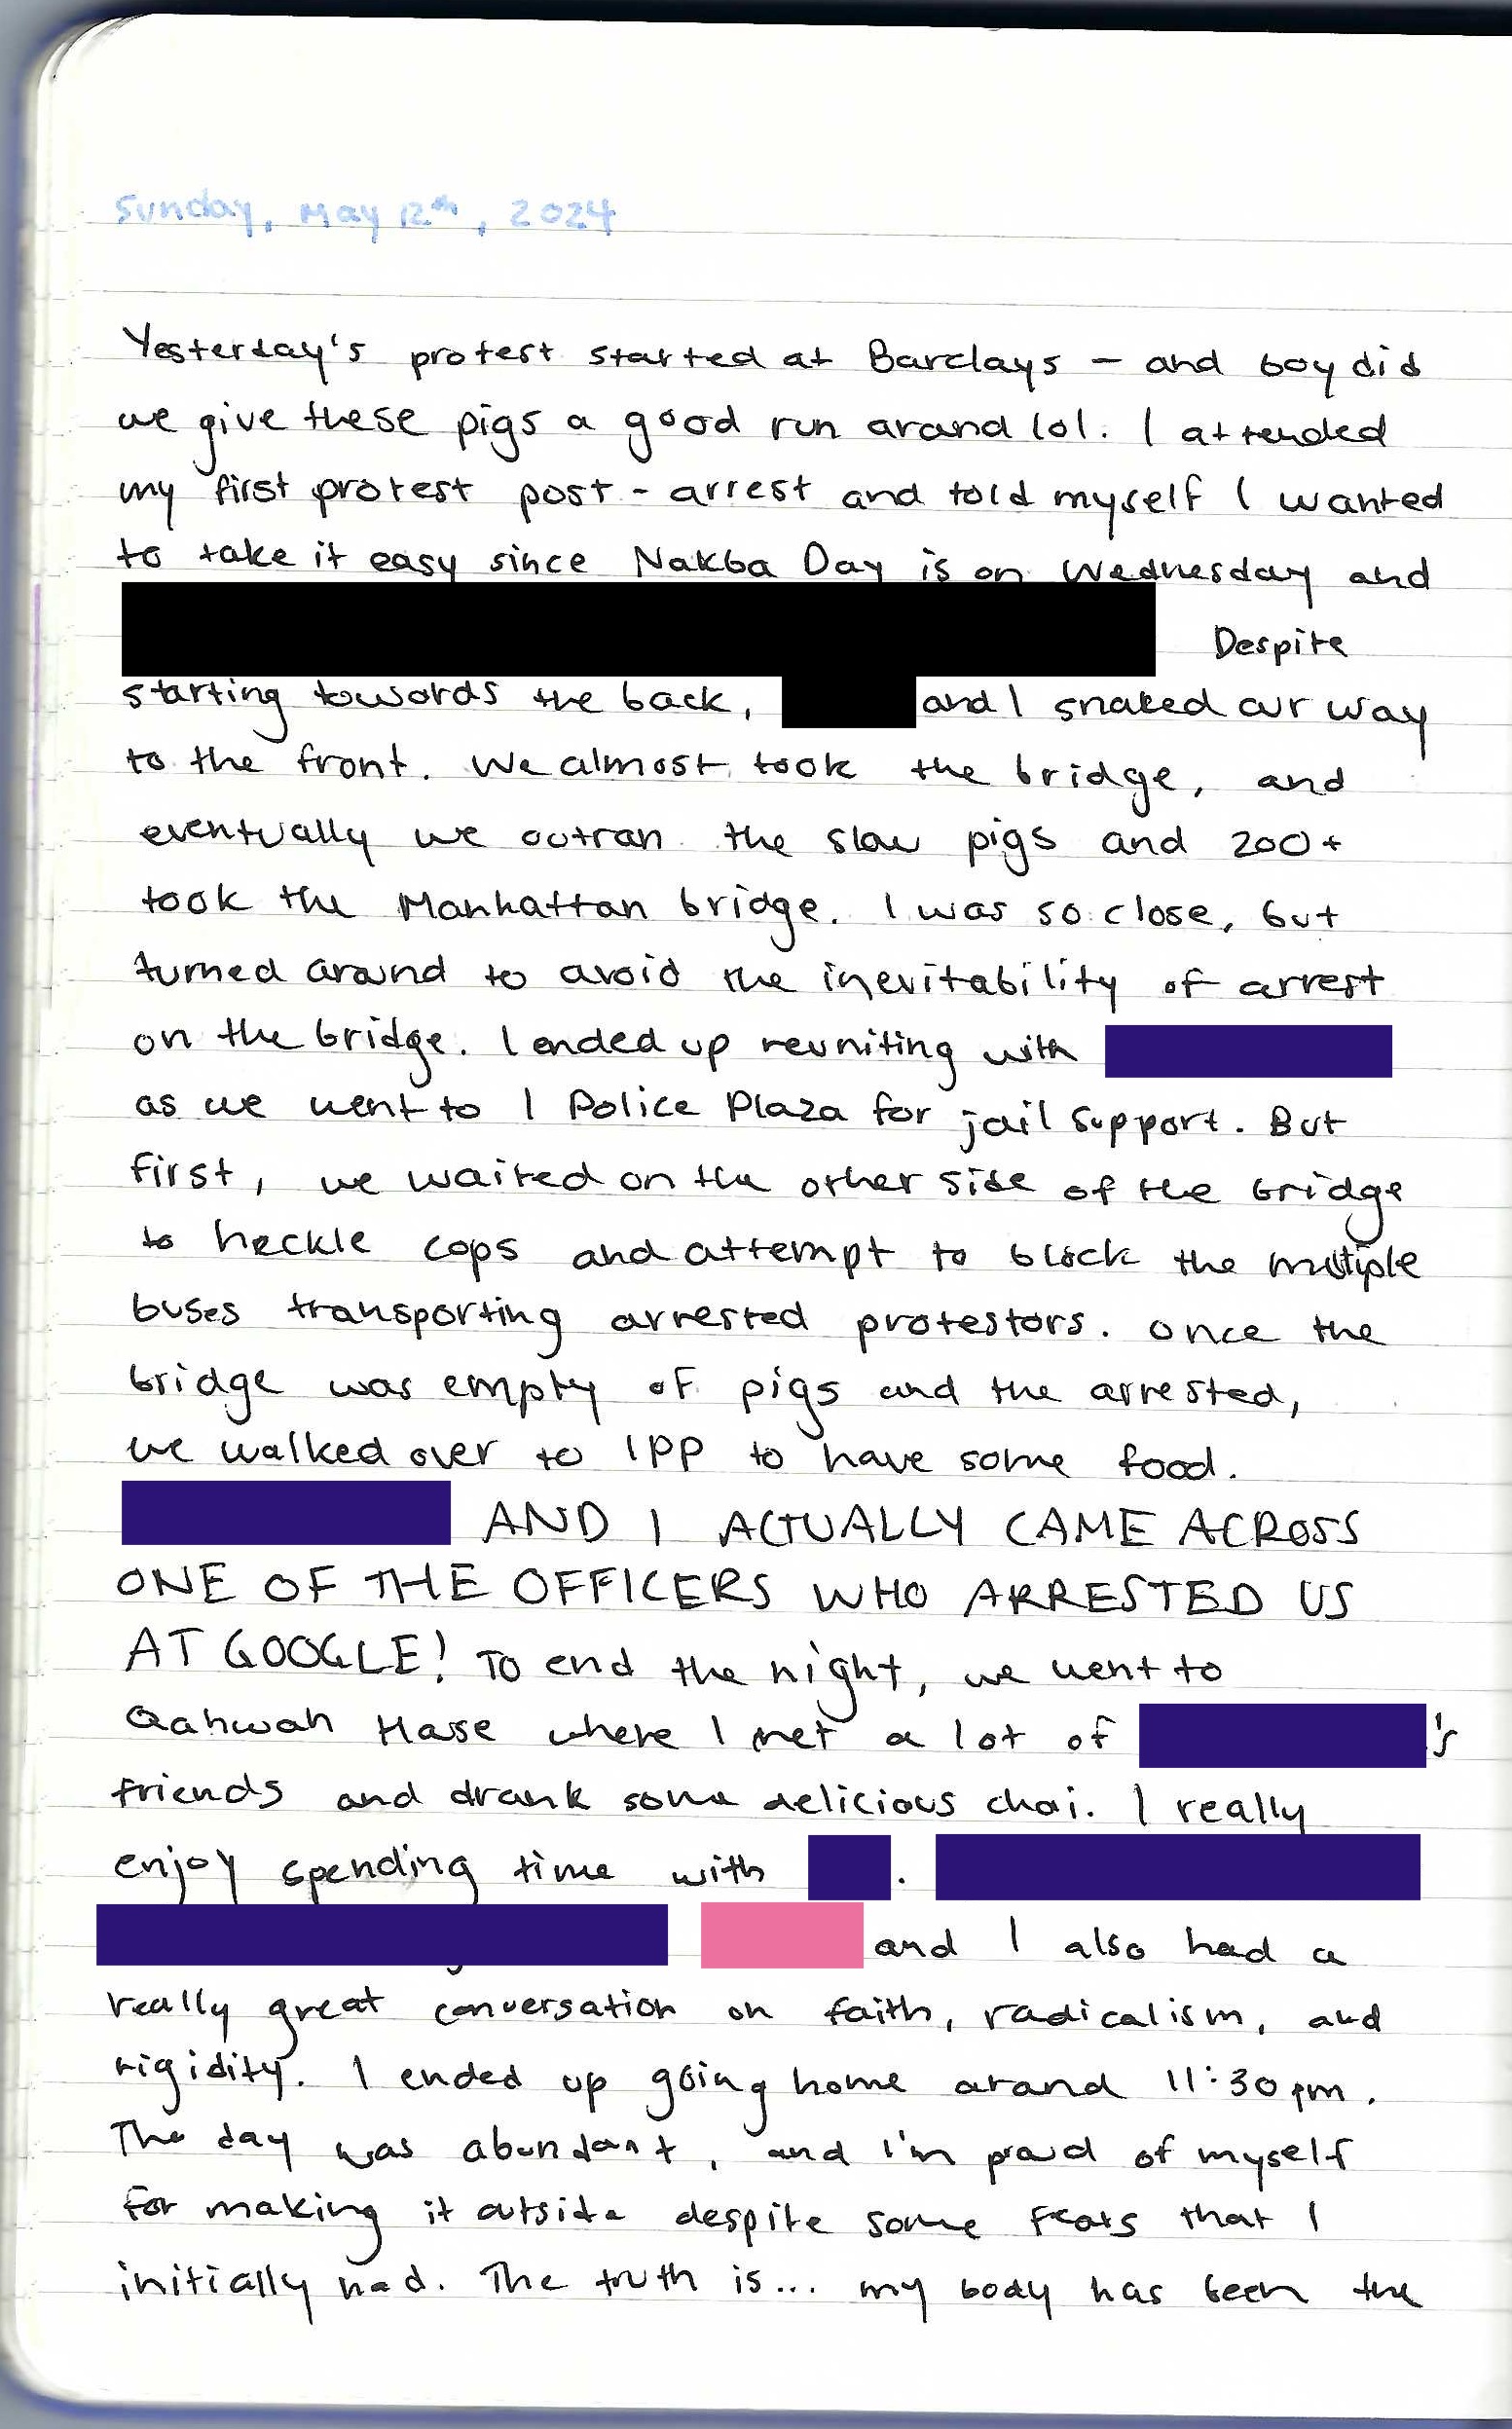 Sunday, May 12th, 2024
Yesterday's protest started at Barclays – and boy did
we give these pigs a good run around lol. I attended
my first protest post-arrest and told myself I wanted
to take it easy since Nakba Day is on Wednesday and
Despite
starting towards the back, and I snaked our way
to the front. We almost took the bridge, and
eventually we outran the slow pigs and 200+
took the Manhattan bridge. I was so close, but
turned around to avoid the inevitability of arrest
on the bridge. I ended up reuniting with
as we went to 1 Police Plaza for jail support. But
first, we waited on the other side of the bridge
to heckle cops and attempt to block the multiple
buses transporting arrested protestors. Once the
bridge was empty of pigs and the arrested,
we walked over to 1PP to have some food.
AND I ACTUALLY CAME ACROSS
ONE OF THE OFFICERS WHO ARRESTED US
AT GOOGLE! To end the night, we went to
Qahwah House where I met a lot of 's
friends and drank some delicious chai. I really
enjoy spending time with .
and I also had a
really great conversation on faith, radicalism, and
rigidity. I ended up going home around 11:30pm.
The day was abundant, and I'm proud of myself
for making it outside despite some fears that I
initially had. The truth is... my body has been the